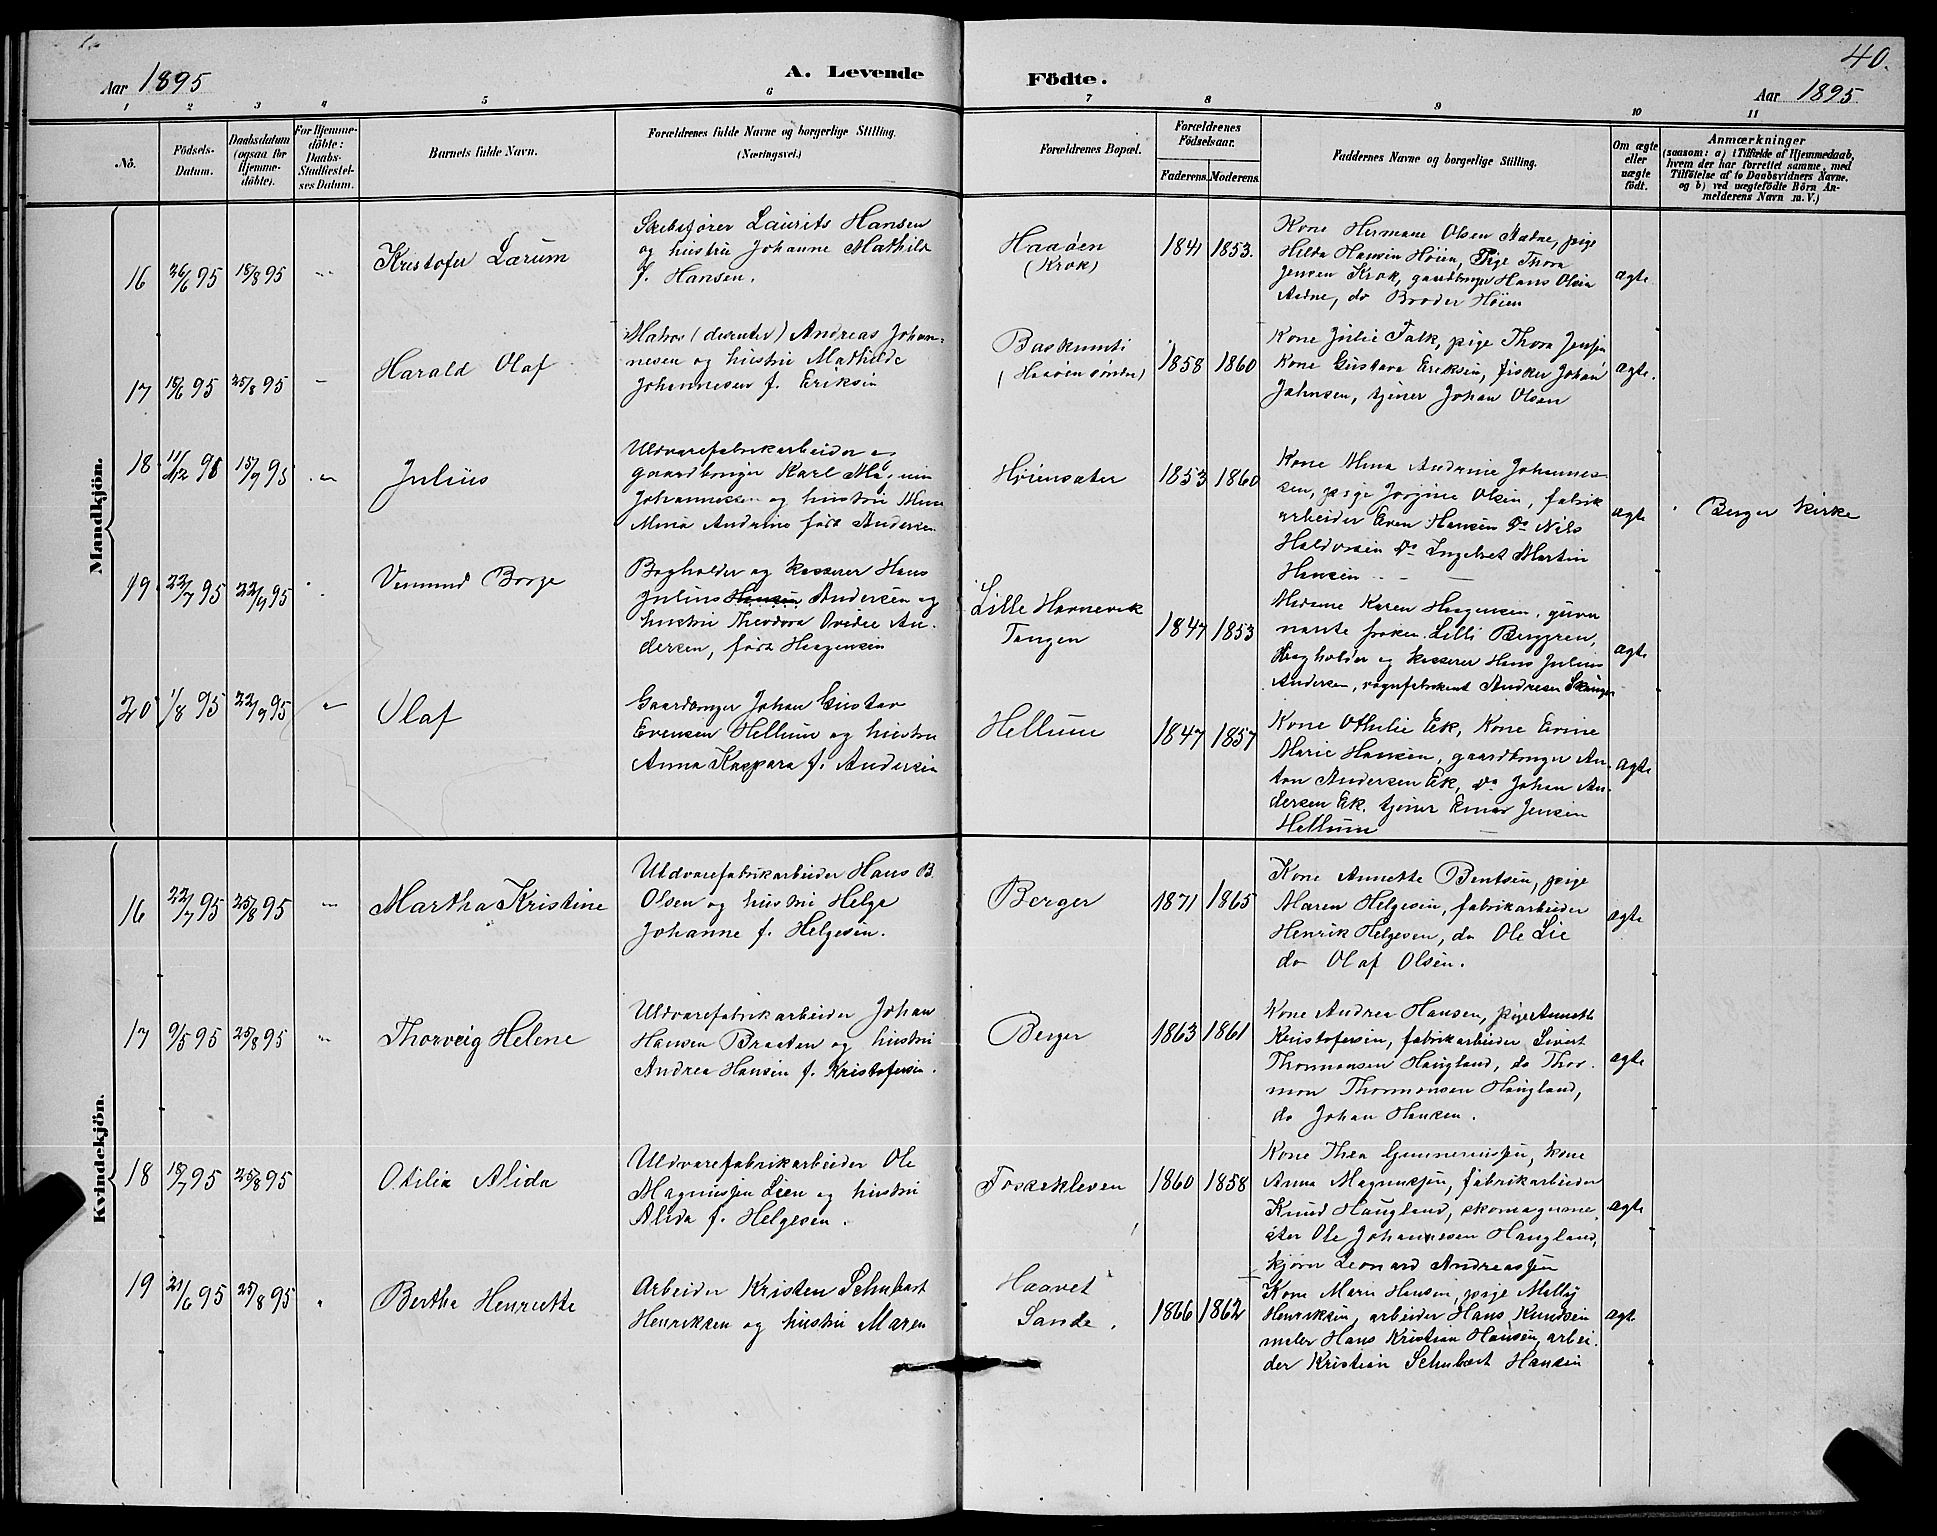 40.
Aar 1895
A. Levende
Födte.
Aar 1895
1 2 3 4 5 6 7 8 9 10 11
No.
Födsels-
Datum.
Daabsdatum
(ogsaa for
Hjemme-
döbte).
For Hjemme-
döbte:
Daabs-
Stadfæstel-
ses Datum.
Barnets fulde Navn.
Forældrenes fulde Navne og borgerlige Stilling.
(Næringsvei.)
Forældrenes Bopæl.
Forældrenes
Födselsaar.
Faderens. Moderens.
Faddernes Navne og borgerlige Stilling.
Om ægte
eller
uægte
födt.
Anmærkninger
(saasom: a) i Tilfælde af Hjemmedaab,
hvem der har forrettet samme, med
Tilföielse af to Daabsvidners Navne.
og b) ved uægtefödte Börn An-
melderens Navn m. V.)
Mandkjön.
16
26/6 95
18/8 95
Kristofer Lærum
Skibsfører Laurits Hansen
og hustru Johanne Mathilde
f. Hansen.
Haaøen
(Krok)
1841
1853.
Kone Hermane Olsen Aadne, pige
Hilda Hansen Høien, Pige Thora
Jensen Krok, gaardbruger Hans Olsen
Aadne, do Broder Høien
ægte.
17
18/6 95
25/8 95
Harald Olaf
Matros Andreas Johan-
nesen og hustru Mathilde
Johannesen f. Eriksen
(Haaøen søndre)
1858
1860
Kone Julie Falk, pige Thora Jensen
Kone Gustava Eriksen, fisker Johan
Jahnsen, tjener Johan Olsen
ægte.
18
15/9 95
Julius
Uldvarefabrikarbeider og
gaardbruger Karl
Johannessen og hustru
Mina Andrine født Andersen
Høiensæter
1853
1860
Kone Mina Andrine Johannes-
sen, pige Jorgine Olsen, fabrik
arbeider Even Hansen Do Nils
Halvorsen Do Ingebret Martin
Hansen
ægte
Berger kirke
19
22/7 95
22/9 95
Vemund Borge
Bogholder og kasserer Hans
Julius Andersen og
hustru Theodora Ovidie An-
dersen, født Haagensen
Lille Havnevik
Tangen
1847
1853
Madame Karen Haagensen, guver
nante frøken Lilli Berggren,
Bogholder og kasserer Hans Julius
Andersen, vognfabrikant Andresen
ægte
20
1/8 95
22/9 95
Olaf
Gaardbruger Johan Gustav
Evensen Hellum og hustru
Anna Kaspara f. Andersen
Hellum
1847
1857
Kone Othilie Ek, Kone Evine
Marie Hansen, gaardbruger An-
ton Andersen Ek, Do Johan An-
dersen Ek. tjener Einar Jensen
Hellum
ægte
Kvindekjön.
16
22/7 95
25/8 95
Martha Kristine
Uldvarefabrikarbeider Hans B.
Olsen og hustru Helga
Johanne f. Helgesen.
Berger
1871
1865
Kone Annette Bentsen, pige
Maren Helgesen, fabrikarbeider
Henrik Helgesen, do Ole Lie
do Olaf Olsen.
ægte
17
9/5 95
25/8 95
Thorveig Helene
Uldvarefabrikarbeider Johan
Hansen Braaten og hustru
Andrea Hansen f. Kristofersen.
Berger
1863
1861
Kone Andrea Hansen, pige Annette
Kristofersen, fabrikarbeider Sivert
Thormonsen Haugland, do Thor-
mon Thormonsen Haugland,
do Johan Hansen.
ægte
18
18/7 95
25/8 95
Otilia Alida
Uldvarefabrikarbeider Ole
Magnussen Lien og hustru
Alida f. Helgesen.
Fossekleven
1860
1858
Kone Thea Gunneriussen, kone
Anna Magnussen, fabrikarbeider
Knud Haugland, skomagerme-
ster Ole Johannesen Haugland,
Leonard Andreassen
ægte
19
21/6 95
25/8 95
Bertha Henriette
Arbeider Kristen Schubart
Henriksen og hustru Maren
Haavet
Sande.
1866
1862
Kone Marie Hansen, pige Molly
Henriksen, arbeider Hans Knudsen
møler Hans Kristian Hansen, arbei-
der Kristian Schubart Hansen
ægte